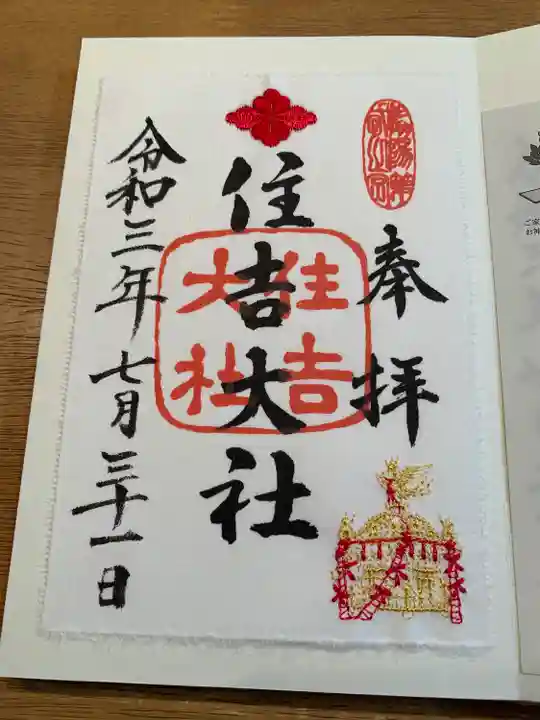 奉拝
住吉大社
住吉
大社
令和三年七月三十一日